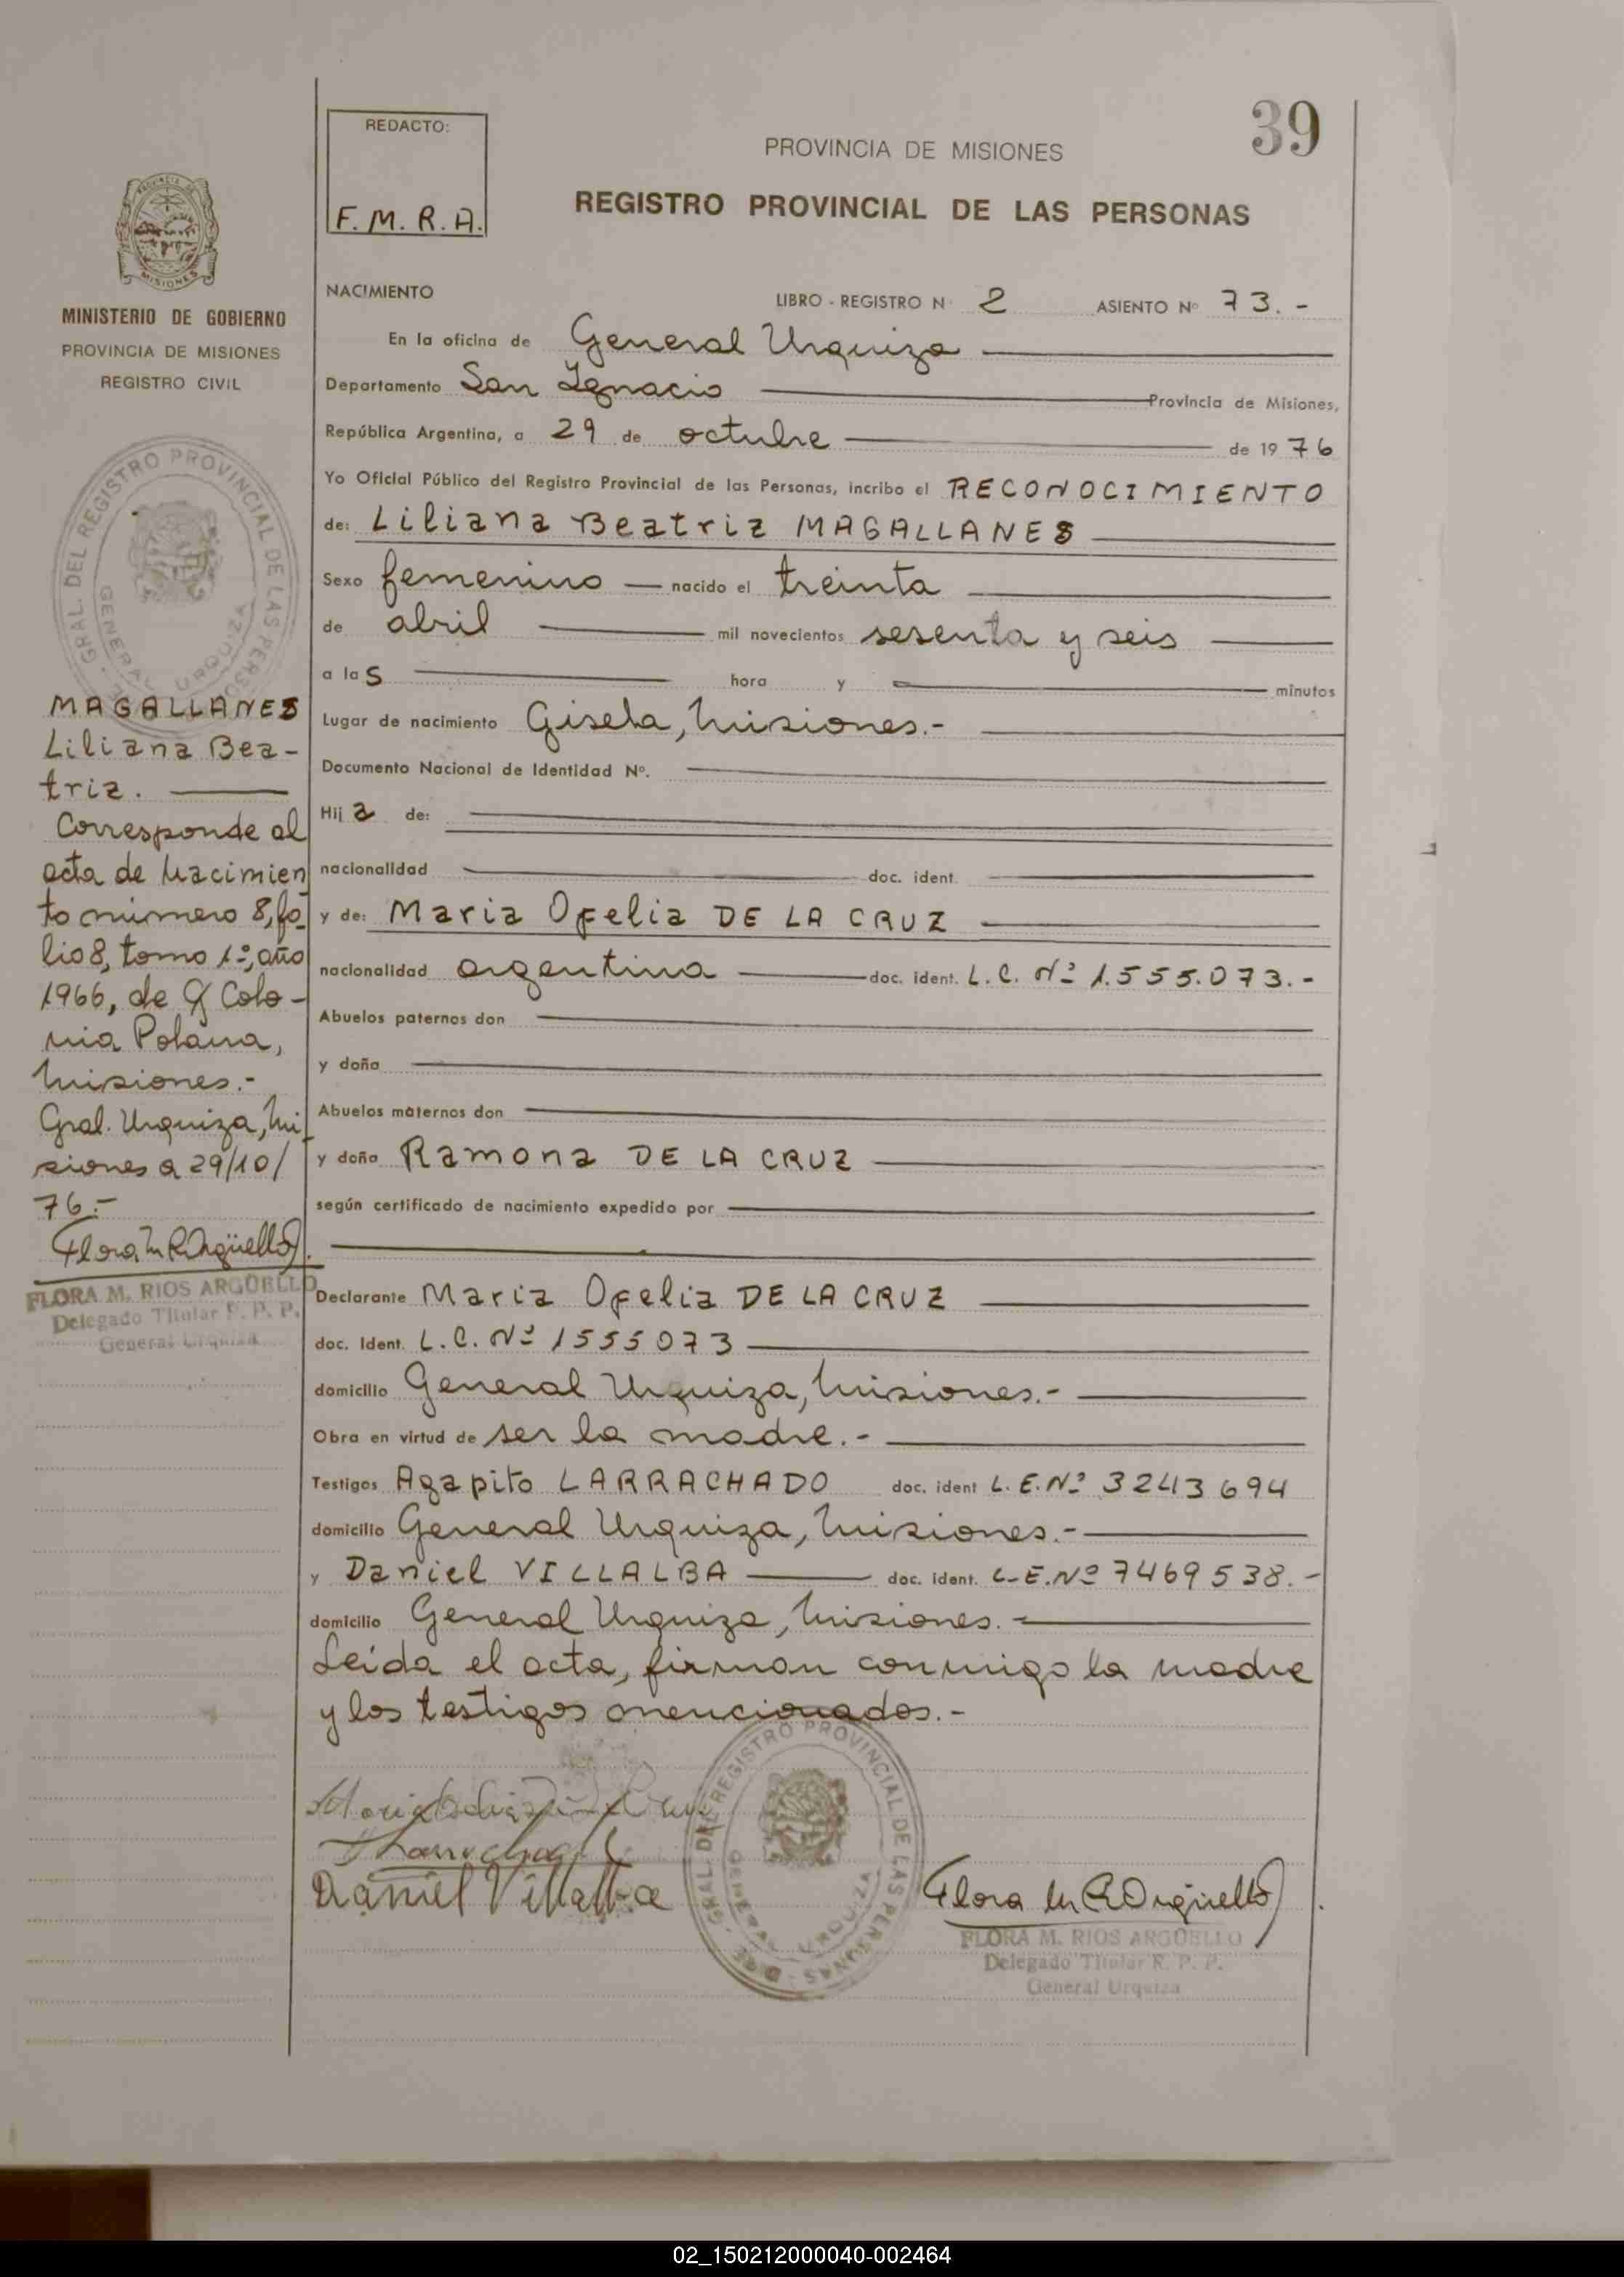 39
REDACTO:
F. M. R. A.
PROVINCIA DE MISIONES
REGISTRO PROVINCIAL DE LAS PERSONAS
MISIONES
MINISTERIO DE GOBIERNO
PROVINCIA DE MISIONES
REGISTRO CIVIL
GRAL. DEL REGISTRO PROVINCIAL DE LAS PERSO
GENERAL URQUIZA
MAGALLANES
Liliana Bea-
triz.
Corresponde al
acta de Nacimien
to número 8, fo-
lio 8, tomo 1º, año
1966, de Colo-
nia Polana,
Misiones.-
Gral. Urquiza, Mi
siones a 29/10/
76.-
Flora M R Argüello
FLORA M. RIOS ARGÜELLO
Delegado Titular R. P. P.
General Urquiza
NACIMIENTO LIBRO - REGISTRO Nº 2 ASIENTO Nº 73.-
En la oficina de General Urquiza
Departamento San Ignacio Provincia de Misiones,
República Argentina, a 29 de octubre de 1976
Yo Oficial Público del Registro Provincial de las Personas, incribo el RECONOCIMIENTO
de: Liliana Beatriz MAGALLANES
Sexo femenino nacido el treinta
de abril mil novecientos sesenta y seis
a las hora y minutos
Lugar de nacimiento Gisela, Misiones.-
Documento Nacional de Identidad Nº.
Hija de:
nacionalidad doc. ident.
y de: Maria Ofelia DE LA CRUZ
nacionalidad argentina doc. ident. L. C. Nº 1.555.073.-
Abuelos paternos don
y doña
Abuelos maternos don
y doña Ramona DE LA CRUZ
según certificado de nacimiento expedido por
Declarante Maria Ofelia DE LA CRUZ
doc. Ident. L. C. Nº 1555073
domicilio General Urquiza, Misiones.-
Obra en virtud de ser la madre.-
Testigos Agapito LARRACHADO doc. ident L. E. Nº 3243694
domicilio General Urquiza, Misiones.-
y Daniel VILLALBA doc. ident. L-E. Nº 7469538.-
domicilio General Urquiza, Misiones.-
Leida el acta, firman conmigo la madre
y los testigos mencionados.-
Daniel Villalba
GRAL. DEL REGISTRO PROVINCIAL DE LAS PERSONAS
GENERAL URQUIZA
Flora M R Argüello
FLORA M. RIOS ARGÜELLO
Delegado Titular R. P. P.
General Urquiza
02_150212000040-002464